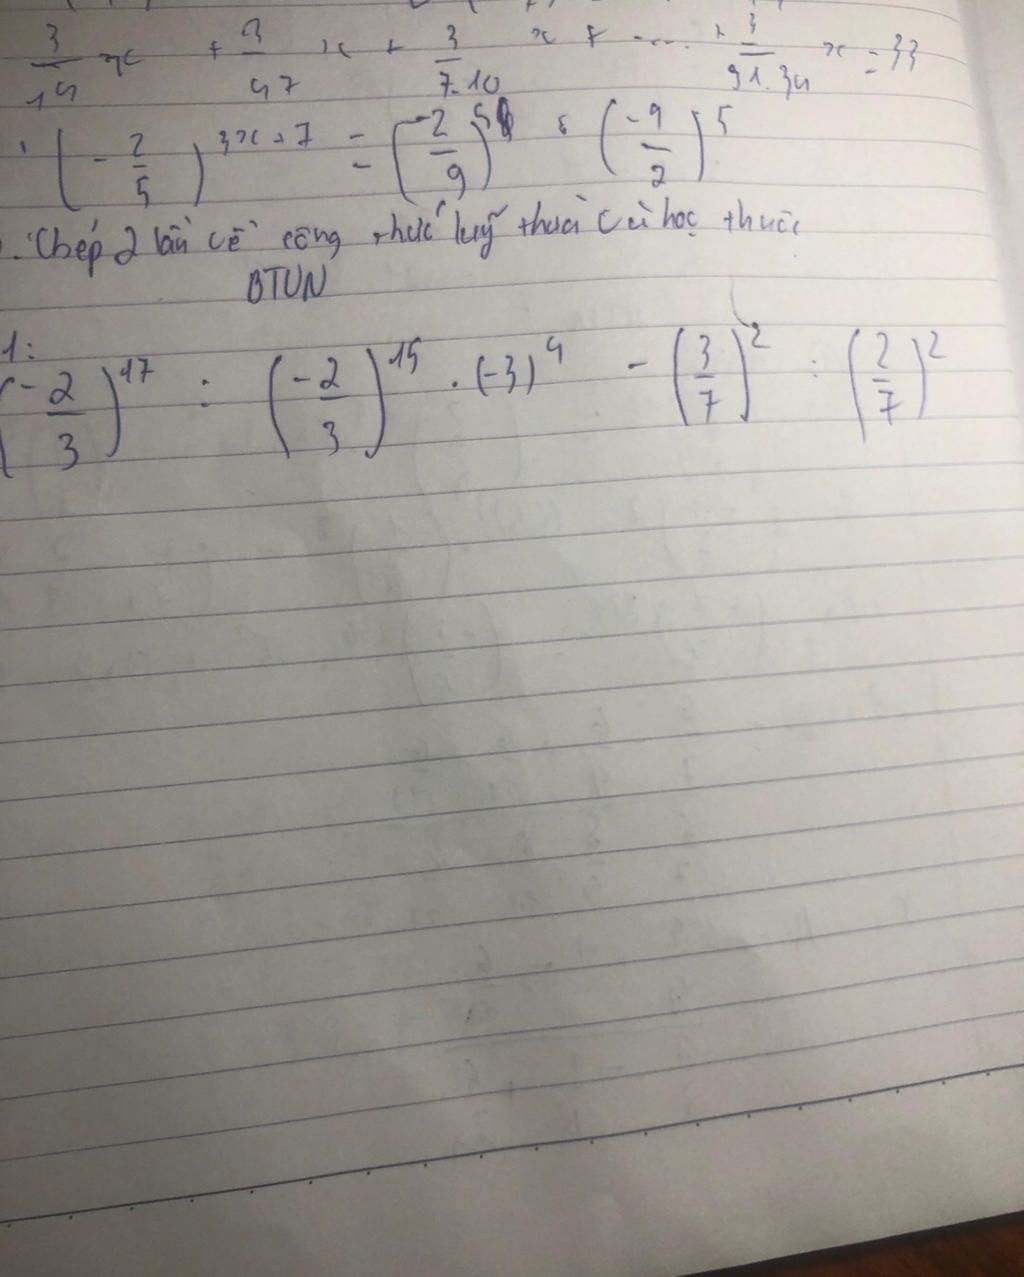 3/1.4 x + 3/4.7 x + 3/7.10 x + .... + 3/31.34 x = 33
(-2/5)^3x+7 = (-2/9)^5 : (-9/2)^5
Chép 2 lần cề công thức luỹ thừa cù học thuộc
BTVN
1:
(-2/3)^17 : (-2/3)^15 . (-3)^4 - (3/7)^2 : (2/7)^2